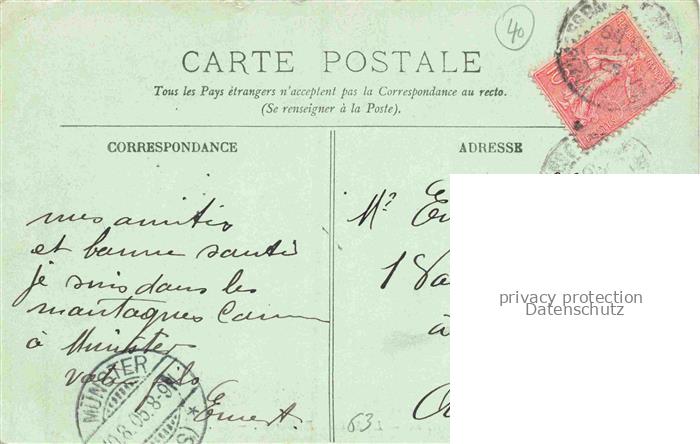 40
CARTE POSTALE
Tous les Pays étrangers n'acceptent pas la Correspondance au recto.
(Se renseigner à la Poste).
CORRESPONDANCE
ADRESSE
mes amitis
et bonne santé
je suis dans les
montagnes
à Munster
fils
Ernest
MÜNSTER
8.05.8-9N.
63
Mr
1
à
privacy protection
Datenschutz